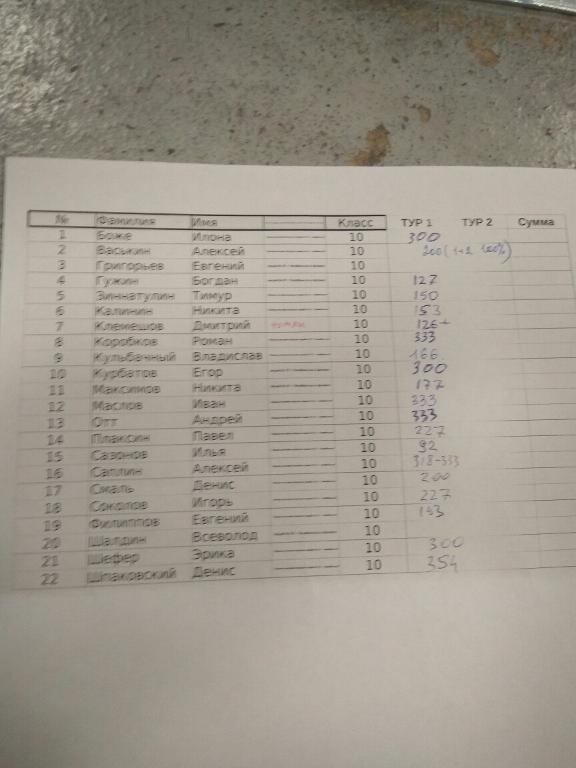 № Фамилия Имя Класс ТУР 1 ТУР 2 Сумма
1 Боже Илона 10 300
2 Васькин Алексей 10 200 (1+2 100%)
3 Григорьев Евгений 10
4 Гужин Богдан 10 127
5 Зиннатулин Тимур 10 150
6 Калинин Никита 10 153
7 Клемешов Дмитрий 10 126+
8 Коробков Роман 10 333
9 Кульбачный Владислав 10 166
10 Курбатов Егор 10 300
11 Максимов Никита 10 177
12 Маслов Иван 10 333
13 Отт Андрей 10 333
14 Плаксин Павел 10 227
15 Сазонов Илья 10 92
16 Саплин Алексей 10 318-333
17 Смаль Денис 10 200
18 Соколов Игорь 10 227
19 Филиппов Евгений 10 193
20 Шалдин Всеволод 10
21 Шефер Эрика 10 300
22 Шпаковский Денис 10 354